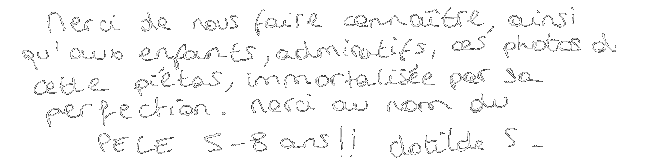 Merci de nous faire connaître, ainsi
qu'aux enfants, admiratifs, ces photos d
cette piétas, immortalisée par sa
perfection. Merci au nom du
PELE 5-8 ans!! Clotilde S_